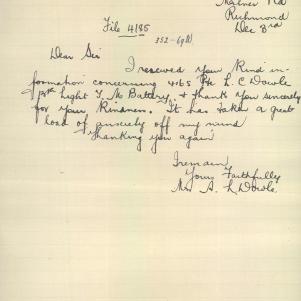 Richmond
Dec 3rd
File 4185
352-69
Dear Sir
I received your Kind in-
formation concerning 465 L. C. Dowle
light T. M Battry, & thank you sincerely
for your Kindness. It has taken a great
load of anxiety off my mind
Thanking you again
I remain
Yours Faithfully
Mrs A. L. Dowle